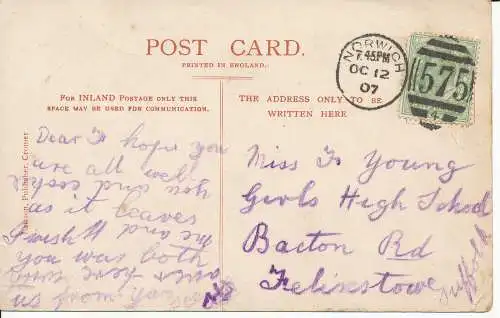 POST CARD.
PRINTED IN ENGLAND.
FOR INLAND POSTAGE ONLY THIS
SPACE MAY BE USED FOR COMMUNICATION.
THE ADDRESS ONLY TO BE
WRITTEN HERE
NORWICH
7.45PM
OC 12
07
575
Publisher, Cromer
Dear F hope you
are all well
and you
as it leaves
me and
I wish
you was both
over here
us from
Miss F Young
Girls High School
Bacton Rd
Felixstowe
Suffolk